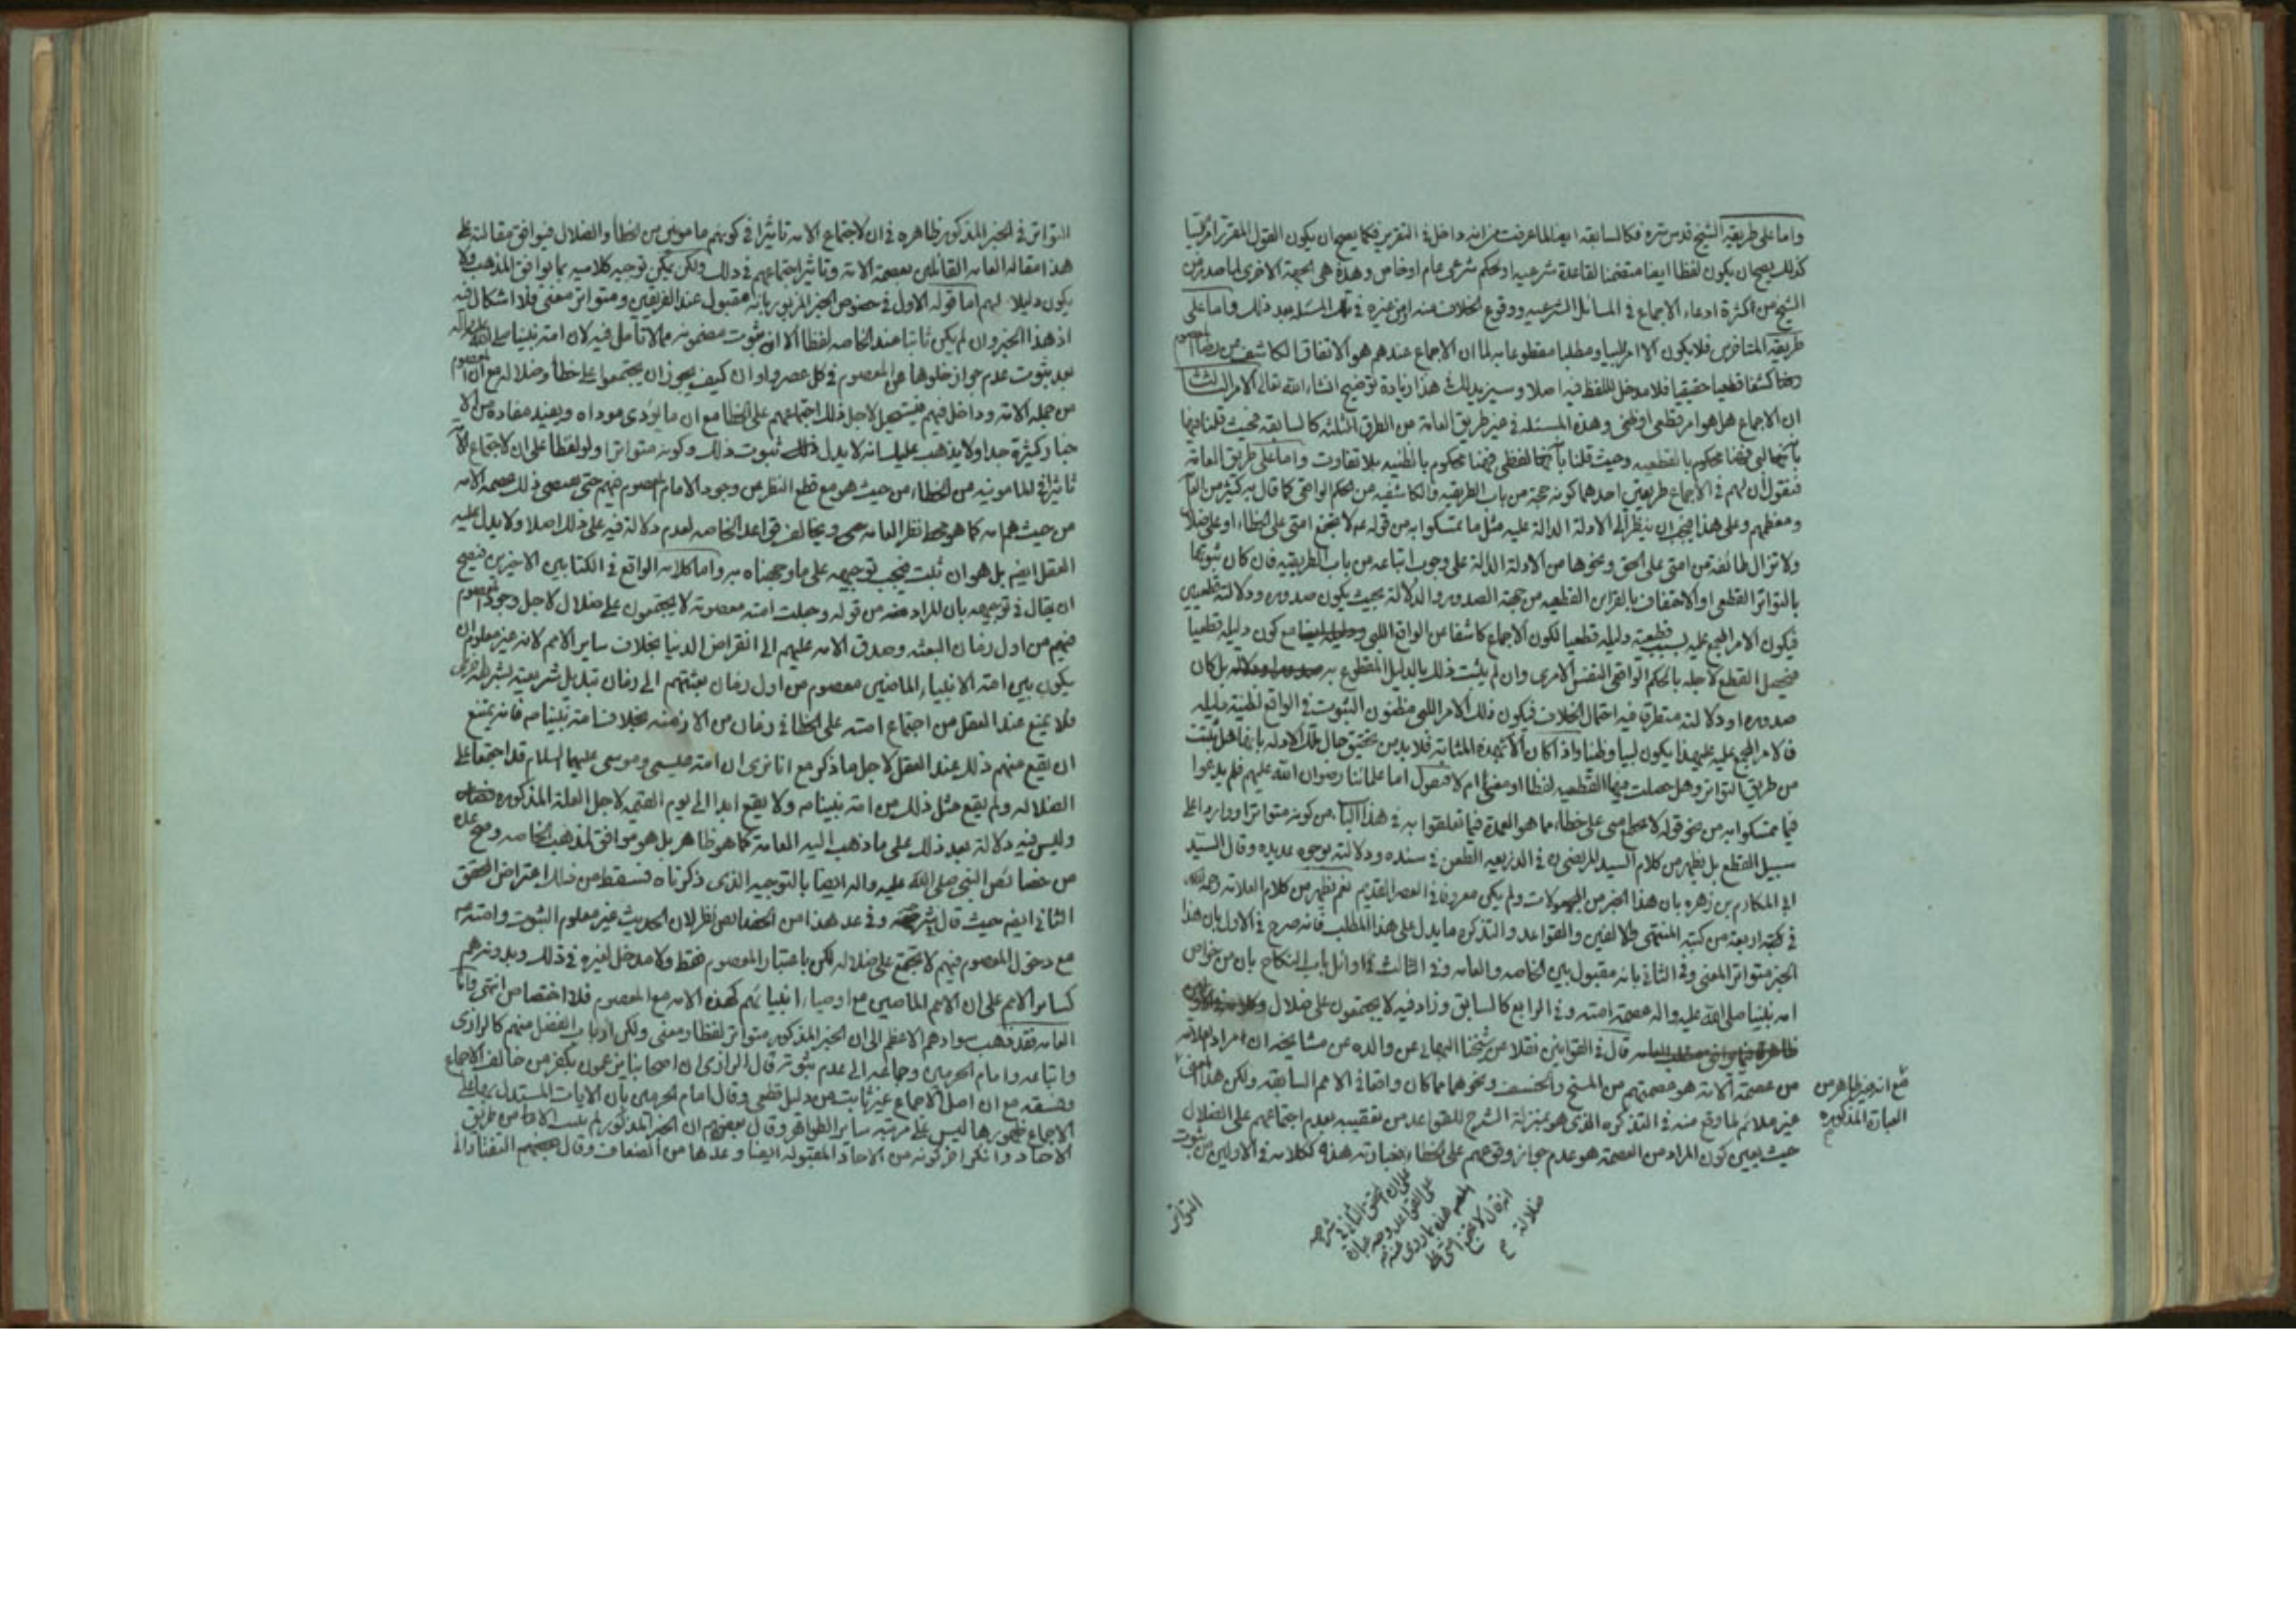 واما على طريقة الشيخ قدس سره فكالسابقه ايضا لما عرفت من انه داخل في التقرير فكما يصح ان يكون القول المقرر امرا لبيا
كذلك يصح ان يكون لفظا ايضا متضمنا لقاعدة شرعيه او لحكم شرعي عام او خاص وهذه هي الجهة الاخرى لما صدر من
الشيخ من كثرة ادعاء الاجماع في المسائل الشرعيه ووقوع الخلاف منه او من غيره في تلك المسئله بعد ذلك واما على
طريقة المتاخرين فلا يكون الا امرا لبيا ومطلبا مقطوعا به لما ان الاجماع عندهم هو الاتفاق الكاشف عن رضا المعصوم
كشفا قطعيا حقيقيا فلا مدخل للفظ فيه اصلا وسيزيد لك هذا زيادة توضيح انشاء الله تعالى الامر الثالث
ان الاجماع هل هو امر قطعي او ظني وهذه المسئله في غير طريق العامة من الطرق الثلثه كالسابقه فحيث قلنا فيها
محكوم بالقطعيه وحيث قلنا لفظي فهنا محكوم بالظنيه بلا تفاوت واما على طريق العامة
فنقول ان لهم في الاجماع طريقين احدهما كونه حجة من باب الطريقيه والكاشفيه عن الحكم الواقعي كما قال به كثير من
ومعظمهم وعلى هذا فيجب ان ينظر الى الادلة الدالة عليه مثل ما تمسكوا به من قوله لا تجتمع امتي على الخطاء او على ضلال
ولا تزال طائفة من امتي على الحق ونحوها من الادلة الدالة على وجوب اتباعه من باب الطريقيه فان كان ثبوتها
بالتواتر القطعي او الاحتفاف بالقراين القطعيه من جهة الصدور والدلالة بحيث يكون صدوره ودلالته قطعيين
فيكون الامر المجمع عليه بسبب قطعية دليله قطعيا لكون الاجماع كاشفا عن الواقع اللبي مع كون دليله قطعيا
فيحصل القطع لاجله بالحكم الواقعي النفس الامري وان لم يثبت ذلك بالدليل المقطوع به بل كان
صدوره او دلالته متطرقا فيه احتمال الخلاف فيكون ذلك الامر اللبي مظنون الثبوت في الواقع لظنية دليله
فالامر المجمع عليه يكون لبيا وظنيا واذا كان الامر بهذه المثابة فلا بد من تحقيق حال تلك الادلة بانها هل ثبتت
من طريق التواتر وهل حصلت منها القطعيه لفظا او معنى ام لا فنقول اما علمائنا رضوان الله عليهم فلم يدعوا
فيما تمسكوا به من نحو قوله لا تجتمع امتي على خطاء مما هو العمدة فيما تعلقوا به في هذا الباب من كونه متواترا وواردا على
سبيل القطع بل يظهر من كلام السيد المرتضى في الذريعه الطعن في سنده ودلالته بوجوه عديده وقال السيد
ابو المكارم بن زهره بان هذا الخبر من المجهولات ولم يكن معروفا في العصر القديم نعم يظهر من كلام العلامة رحمه الله
في اربعة من كتبه المنتهى والالفين والقواعد والتذكره ما يدل على هذا المطلب فانه صرح في الاول بان هذا
الخبر متواتر المعنى وفي الثاني بانه مقبول بين الخاصه والعامه وفي الثالث في اوائل باب النكاح بان من خواص
امة نبينا صلى الله عليه واله عصمة امته وفي الرابع كالسابق وزاد فيه لا يجتمعون على ضلال
قال في القوانين نقلا عن شيخنا البهائي عن والده عن مشايخه ان مراد العلامه
من عصمة الامة هو عصمتهم من المسخ والخسف ونحوهما مما كان واقعا في الامم السابقه ولكن هذا المعنى
غير ملائم لما وقع منه في التذكره الذي هو بمنزلة الشرح للقواعد من تعقيبه بعدم اجتماعهم على الضلال
حيث يعين كون المراد من العصمة هو عدم جواز وقوعهم على الخطاء فعبارته هذه ككلامه في الاولين من ثبوت
مع انه غير ظاهر من
العبارة المذكوره
على ان المحقق الثاني في شرحه
على القواعد وجه عبارة
ضلالة
التواتر
التواتر في الخبر المذكور ظاهره في ان لاجتماع الامه تاثيرا في كونهم مامونين من الخطأ والضلال فيوافق مقالته
هذا مقالة العامه القائلين بعصمة الامة وتاثير اجتماعهم في ذلك ولكن يمكن توجيه كلاميه بما يوافق المذهب ولا
يكون دليلا لهم اما قوله الاول في خصوص الخبر المزبور بانه مقبول عند الفريقين ومتواتر معنى فلا اشكال فيه
اذ هذا الخبر وان لم يكن ثابتا عند الخاصه لفظا الا ان ثبوت مضمونه مما لا تامل فيه لان امة نبينا صلى الله عليه واله
بعد ثبوت عدم جواز خلوها عن المعصوم في كل عصر واوان كيف يجوز ان يجتمعوا على خطأ وضلالة مع ان المعصوم
من جملة الامة وداخل فيهم فيستحيل لاجل ذلك اجتماعهم على الخطا مع ان ما يؤدي موداه ويفيد مفاده من الا
خبار كثيرة جدا ولا يذهب عليك انه لا يدل ثبوت ذلك وكونه متواترا ولو لفظا على ان لاجتماع الامة
تاثيرا في المامونيه من الخطاء من حيث هو مع قطع النظر عن وجود الامام المعصوم فيهم حتى يقتضي ذلك عصمة الامه
من حيث هم امه كما هو محط نظر العامه ويخالف قواعد الخاصه لعدم دلالة فيه على ذلك اصلا ولا يدل عليه
العقل ايضا بل هو ان ثبت فيجب توجيهه على ما وجهناه به واما كلامه الواقع في الكتابين الاخيرين فيصح
ان يقال في توجيهه بان المراد من قوله وجعلت امته معصومة لا يجتمعون على ضلال لاجل وجود المعصوم
فيهم من اول زمان البعثه وصدق الامه عليهم الى انقراض الدنيا بخلاف ساير الامم لانه غير معلوم ان
يكون بين امة الانبياء الماضين معصوم من اول زمان بعثتهم الى زمان تبديل شريعته بشريعة اخرى
فلا يمنع عند العقل من اجتماع امته على الخطا في زمان من الازمنه بخلاف امة نبينا فانه يمتنع
ان يقع منهم ذلك عند العقل لاجل ما ذكر مع انا نرى ان امة عيسى وموسى عليهما السلام قد اجتمعا على
الضلاله ولم يقع مثل ذلك من امة نبينا ولا يقع ابدا الى يوم القيمه لاجل العلة المذكوره
وليس فيه دلالة بعد ذلك على ما ذهب اليه العامة كما هو ظاهر بل هو موافق لمذهب الخاصه وصح عده
من خصائص النبي صلى الله عليه واله ايضا بالتوجيه الذي ذكرناه فسقط من ذلك اعتراض المحقق
الثاني ايضا حيث قال وفي عد هذا من الخصائص نظر لان الحديث غير معلوم الثبوت وامته
مع دخول المعصوم فيهم لا تجتمع على ضلاله لكن باعتبار المعصوم فقط ولا مدخل لغيره في ذلك وبدونه هم
كساير الامم على ان الامم الماضين مع اوصياء انبيائهم كهذه الامه مع المعصوم فلا اختصاص انتهى واما
العامه فقد ذهب سوادهم الاعظم الى ان الخبر المذكور متواتر لفظا ومعنى ولكن ارباب الفضل منهم كالرازي
واتباعه وامام الحرمين وجماعه الى عدم ثبوته قال الرازي ان اصحابنا يزعمون بكفر من خالف الاجماع
وفسقه مع ان اصل الاجماع غير ثابت من دليل قطعي وقال امام الحرمين بان الايات المستدل بها على
الاجماع ظهورها ليس على مرتبة ساير الظواهر وقال بعضهم ان الخبر المذكور لم يثبت الا من طريق
الاحاد وانكر اخر كونه من الاحاد المقبولة ايضا وعدها من الضعاف وقال بعضهم التفتازاني